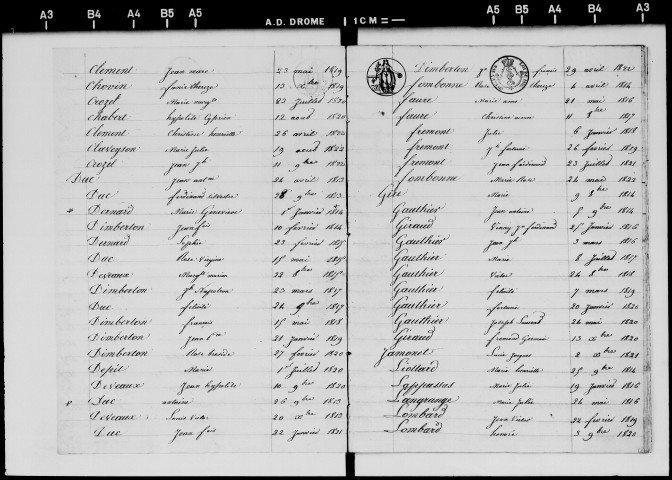 A3 B4 B5 A5 A.D. DROME 1 CM A5 B5 B4 A3
Clement Jean marc 23 mai 1819
Chovin 13 xbre 1819
Crozet Marie 23 Juillet 1820
Chabert hypolite Cyprien 12 aout 1820
Clement Christine henriette 26 avril 1822
Claveyson Marie Julie 19 aout 1822
Crozet Jean 11 9bre 1822
Duc Jean 24 avril 1813
Duc ferdinand 28 9bre 1813
* Bernard Marie Genevieve 1er Janvier 1814
Dimberton Jean fois 10 fevrier 1814
Sophie 23 fevrier 1815
Duc Rose Virginie 15 mai 1815
Deveaux 22 8bre 1815
Dimberton Jh Napoleon 23 mars 1817
Duc felicité 24 9bre 1817
Dimberton françois 15 mai 1818
Dimberton Jean 21 Janvier 1819
Dimberton Rose 27 fevrier 1820
Depit Marie 1er Juillet 1820
Deveaux Jean hypolite 10 9bre 1820
* Duc antoine 26 9bre 1813
Deveaux Louis Victor 20 xbre 1813
Duc Jean fois 22 Janvier 1821
Dimberton 29 avril 1822
fombonne Rose Thereze 4 avril 1814
faure Marie anne 21 mai 1816
faure Christine 11 8bre 1817
fremont Julie 6 Janvier 1818
fremont Jh fortuné 26 fevrier 1819
fremont Jean ferdinand 23 Juillet 1821
fombonne Marie Rose 24 mai 1822
Marie 9 8bre 1814
Gauthier Jean antoine 5 9bre 1814
Giraud ferdinand 25 Janvier 1816
Gauthier Jean Jh 3 mars 1816
Gauthier Marie 8 Juillet 1817
Gauthier Victor 24 8bre 1818
Gauthier felicité 7 mars 1819
Gauthier fortuné 20 Janvier 1820
Gauthier Joseph Laurent 24 mai 1820
Giraud fremond Germain 13 xbre 1820
Jamonet Louis Jacques 2 xbre 1821
Liottard Marie henriette 25 9bre 1814
Marie Julie 19 Janvier 1816
Lagrange Marie Julie 24 mai 1816
Lombard Jean Victor 22 fevrier 1819
Lombard honoré 3 9bre 1820